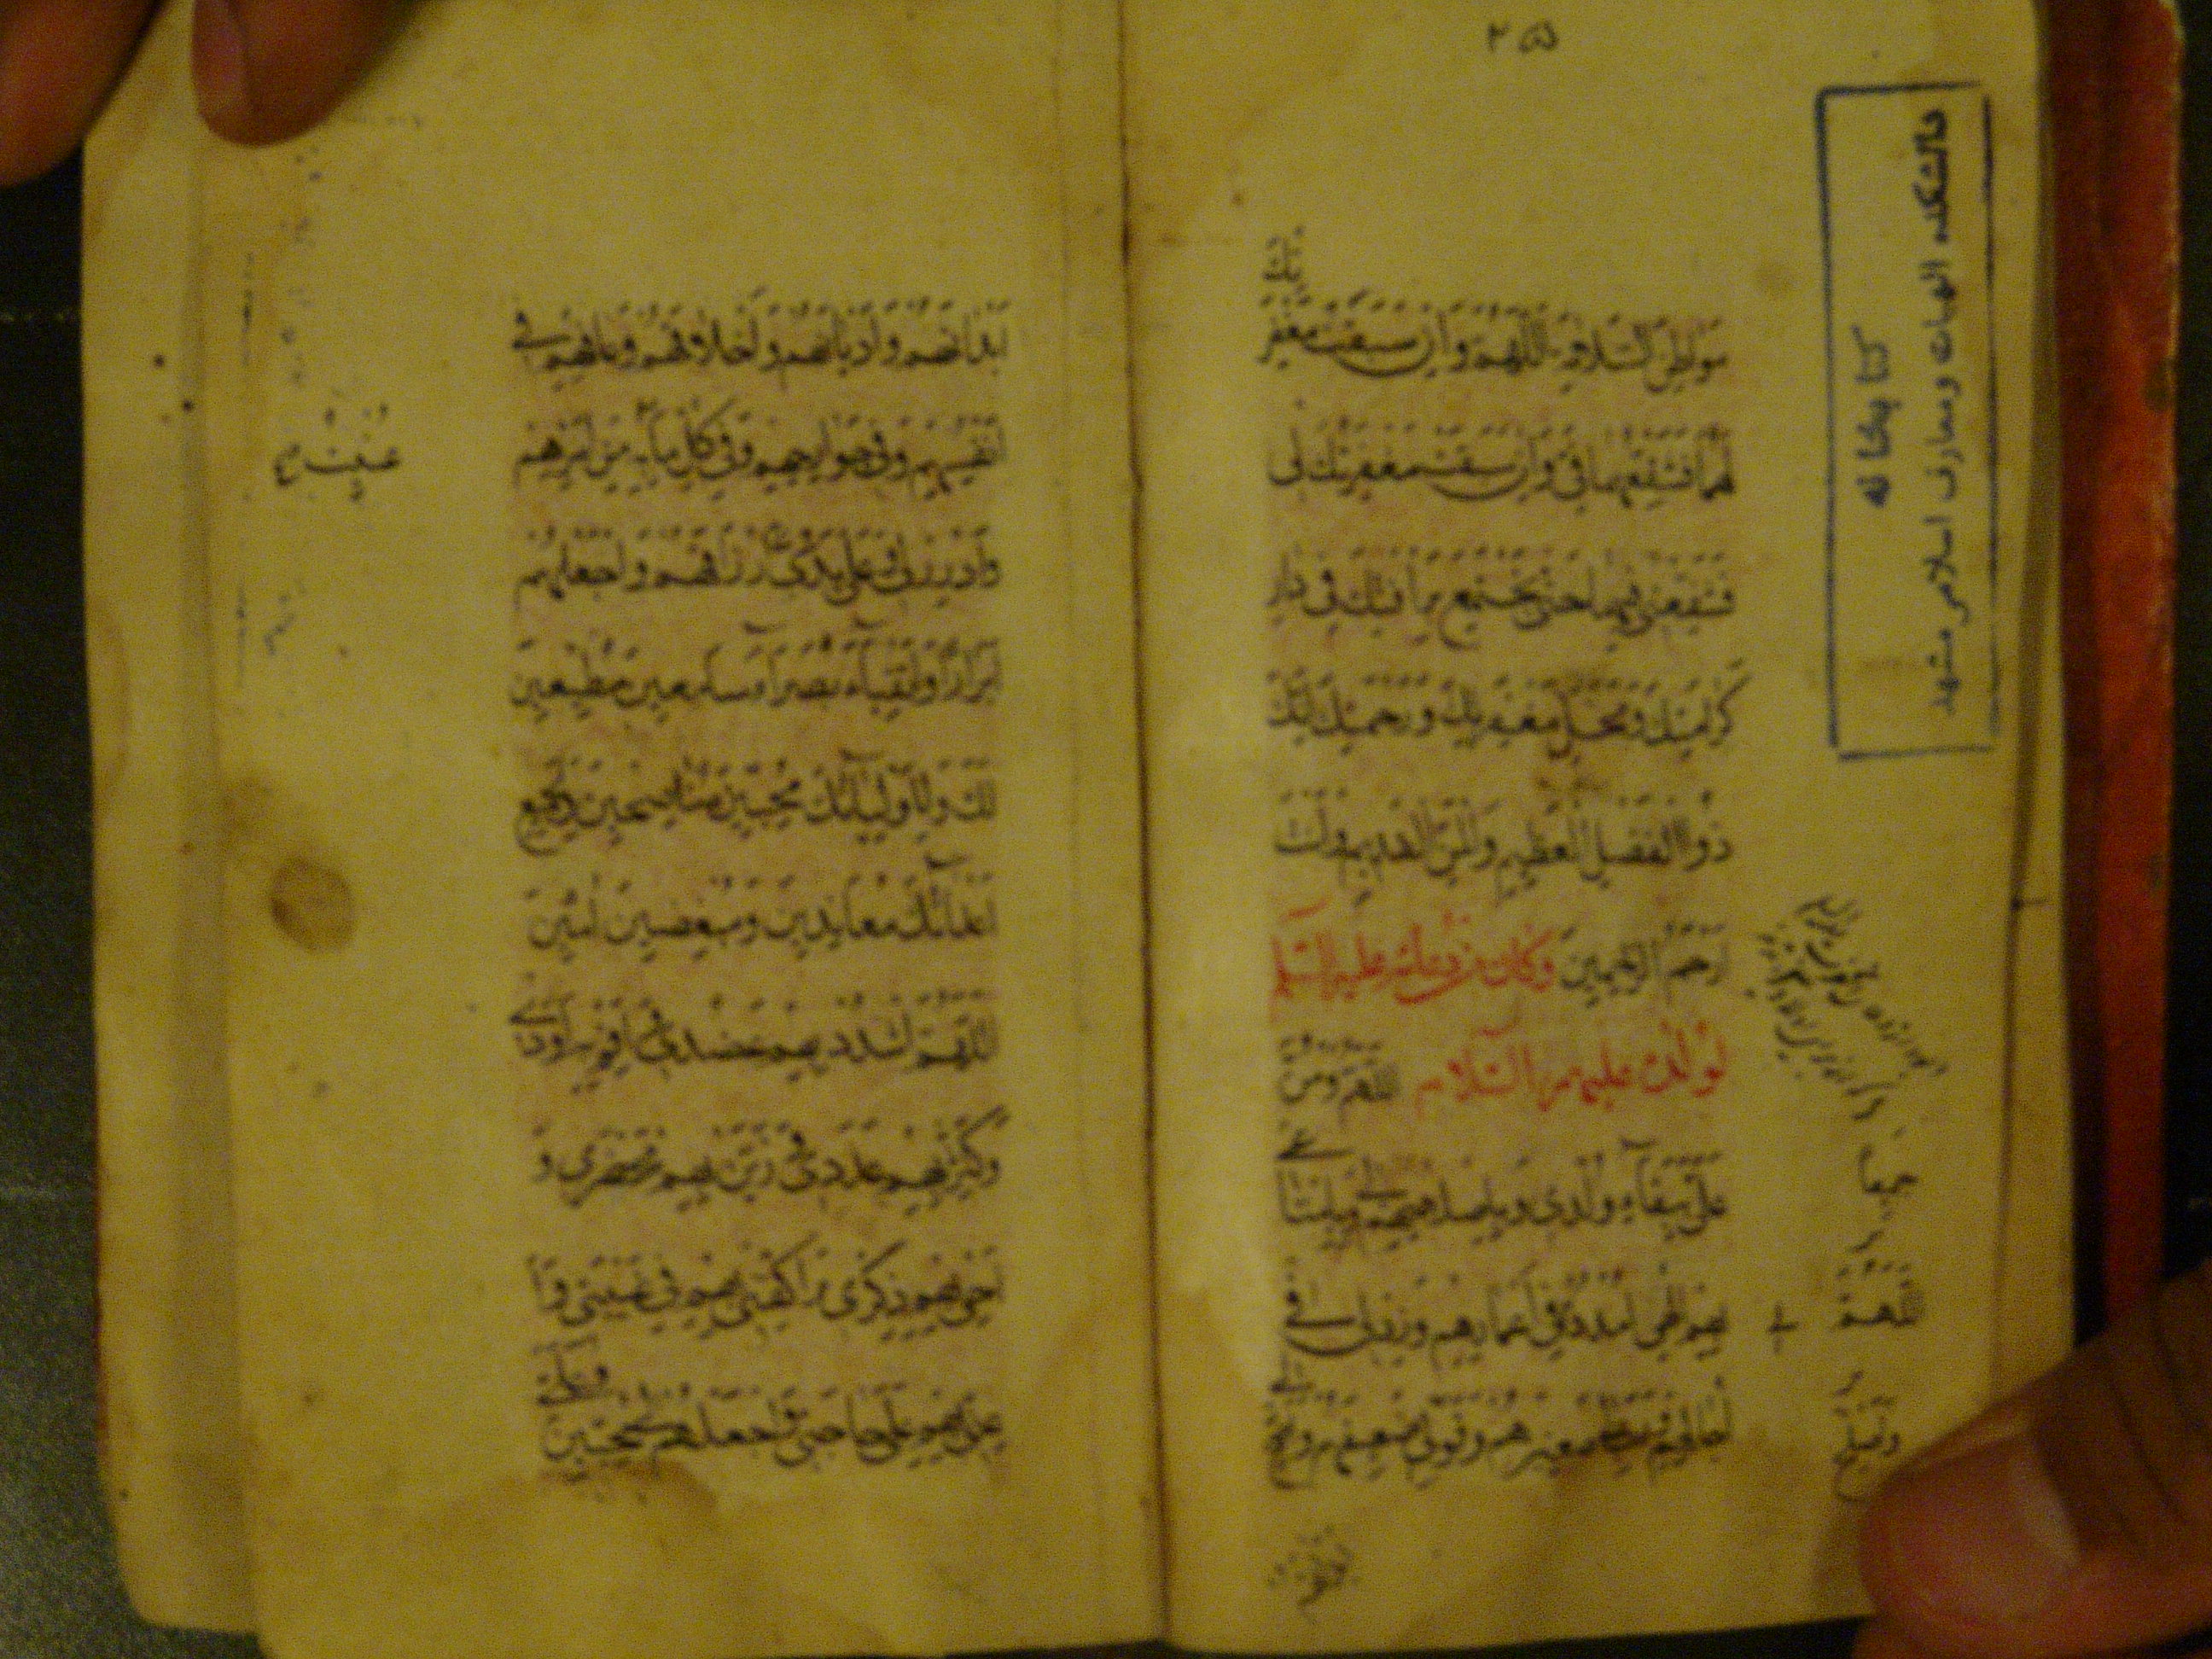 ٢٥٥
كتابخانه
دانشكده الهيات ومعارف اسلامى مشهد
مَوَاطِنَ السَّلَامَةِ اللَّهُمَّ وَإِنْ سَبَقَتْ مَغْفِرَتُكَ
لَهُمَا فَشَفِّعْهُمَا فِيَّ وَإِنْ سَبَقَتْ مَغْفِرَتُكَ لِي
فَشَفِّعْنِي فِيهِمَا حَتَّى نَجْتَمِعَ بِرَأْفَتِكَ فِي دَارِ
كَرَامَتِكَ وَمَحَلِّ مَغْفِرَتِكَ وَرَحْمَتِكَ إِنَّكَ
ذُو الْفَضْلِ الْعَظِيمِ وَالْمَنِّ الْقَدِيمِ وَأَنْتَ
أَرْحَمُ الرَّاحِمِينَ وَكَانَ مِنْ دُعَائِهِ عَلَيْهِ السَّلَامُ
لِوُلْدِهِ عَلَيْهِمُ السَّلَامُ اللَّهُمَّ وَمُنَّ
عَلَيَّ بِبَقَاءِ وُلْدِي وَبِإِصْلَاحِهِمْ لِي وَبِإِمْتَاعِي
بِهِمْ إِلَهِي امْدُدْ لِي فِي أَعْمَارِهِمْ وَزِدْ لِي فِي
آجَالِهِمْ وَرَبِّ لِي صَغِيرَهُمْ وَقَوِّ لِي ضَعِيفَهُمْ وَأَصِحَّ لِي
اللَّهُمَّ
أَبْدَانَهُمْ وَأَدْيَانَهُمْ وَأَخْلَاقَهُمْ وَعَافِهِمْ فِي
أَنْفُسِهِمْ وَفِي جَوَارِحِهِمْ وَفِي كُلِّ مَا بِهِ مِنْ أَمْرِهِمْ
عُنِيتُ
وَأَدْرِرْ لِي وَعَلَى يَدِي أَرْزَاقَهُمْ وَاجْعَلْهُمْ
أَبْرَارًا أَتْقِيَاءَ بُصَرَاءَ سَامِعِينَ مُطِيعِينَ
لَكَ وَلِأَوْلِيَائِكَ مُحِبِّينَ مُنَاصِحِينَ وَلِجَمِيعِ
أَعْدَائِكَ مُعَانِدِينَ وَمُبْغِضِينَ آمِينَ
اللَّهُمَّ اشْدُدْ بِهِمْ عَضُدِي وَأَقِمْ بِهِمْ أَوَدِي
وَكَثِّرْ بِهِمْ عَدَدِي وَزَيِّنْ بِهِمْ مَحْضَرِي وَ
أَحْيِ بِهِمْ ذِكْرِي وَاكْفِنِي بِهِمْ فِي غَيْبَتِي وَأَ
عِنِّي بِهِمْ عَلَى حَاجَتِي وَاجْعَلْهُمْ لِي مُحِبِّينَ وَعَلَيَّ